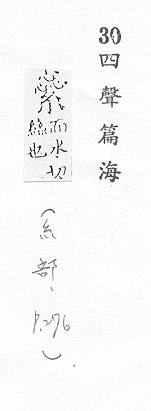 30 四聲篇海
繠而水切絲也
(糸部, P.276).